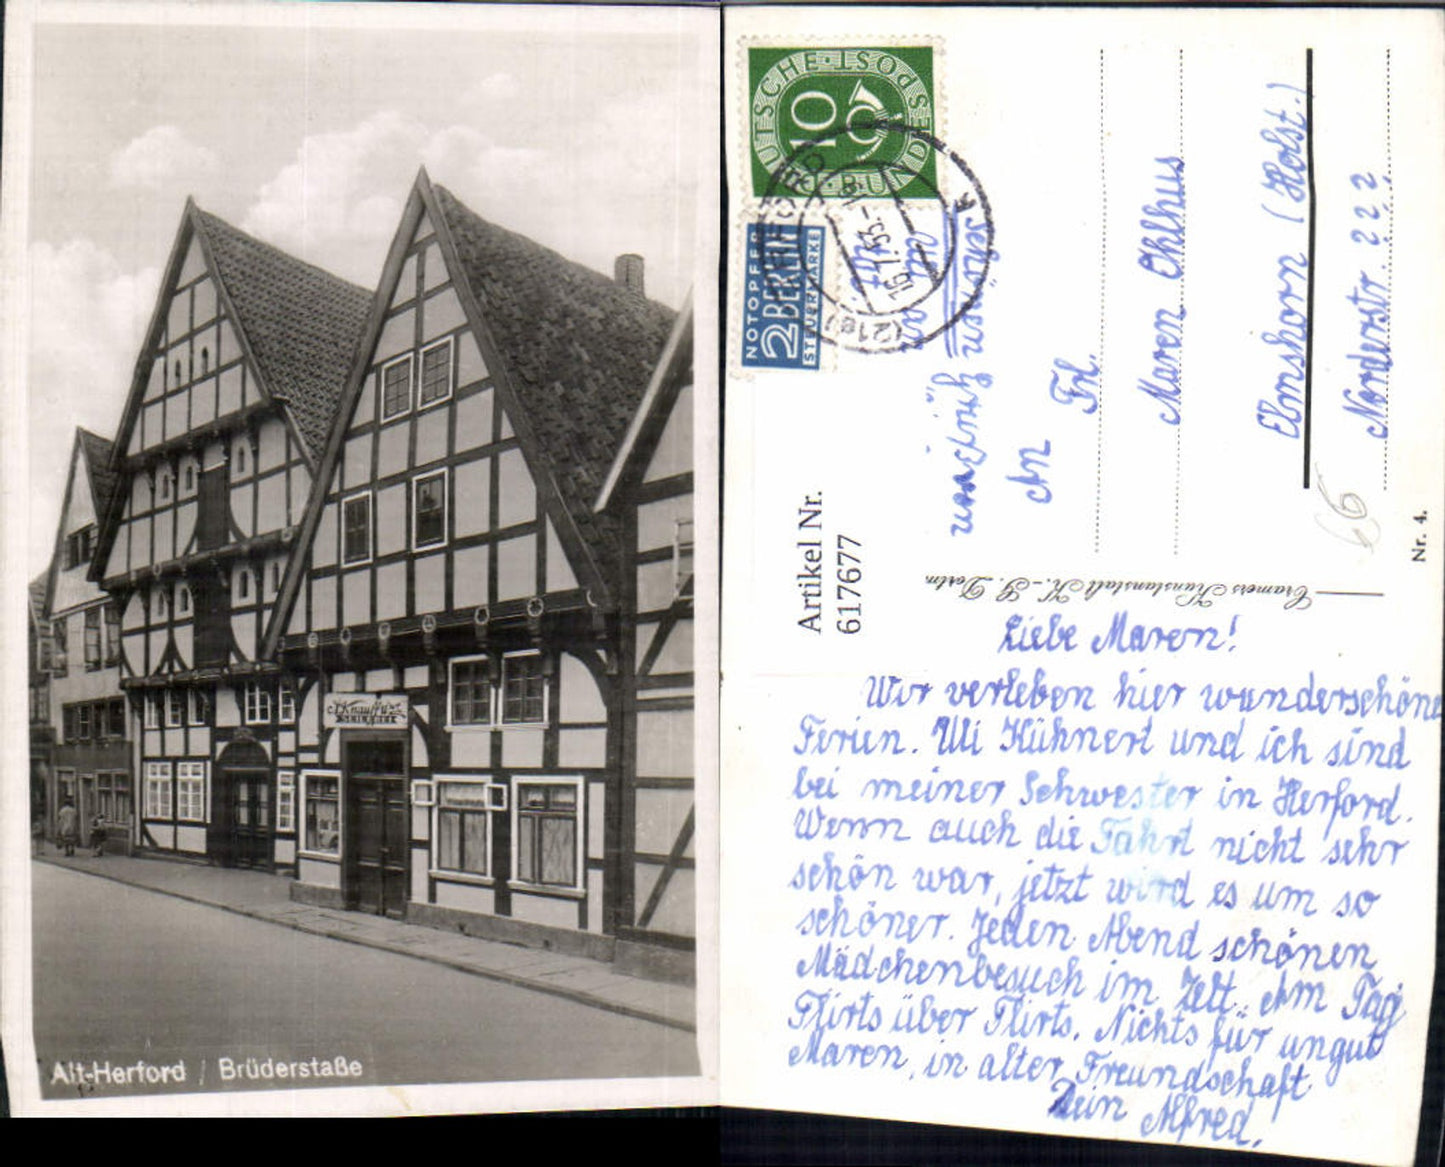 A. Knauff
Alt-Herford / Brüderstaße
DEUTSCHE·POST
10
BUNDES
NOTOPFER
2 BERLIN
STEUERMARKE
HERFORD
16.7.53.-18
(21a)
k
schönen
Gruß
An
Frl.
Maren Ohlhus
Elmshorn (Holst.)
Norderstr. 222
66
Artikel Nr.
617677
Cramers Kunstanstalt K.-G. Dortm.
Nr. 4.
Liebe Maren!
Wir verleben hier wunderschöne
Ferien. Uli Kühnert und ich sind
bei meiner Schwester in Herford.
Wenn auch die Fahrt nicht sehr
schön war, jetzt wird es um so
schöner. Jeden Abend schönen
Mädchenbesuch im Zelt. Am Tag
Flirts über Flirts. Nichts für ungut
Maren, in alter Freundschaft
Dein Alfred.